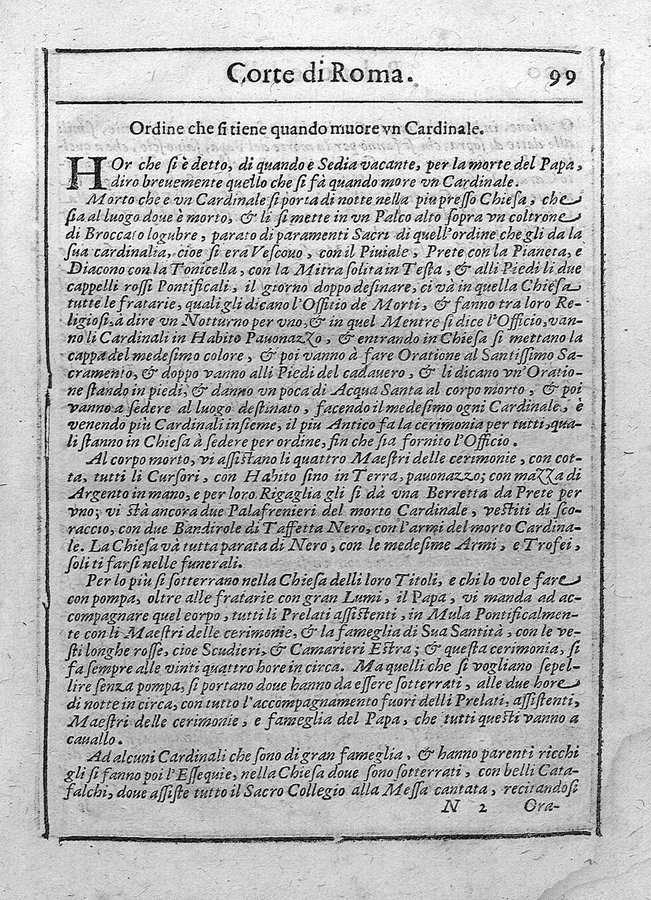 Corte di Roma. 99
Ordine che si tiene quando muore vn Cardinale.
HOr che si è detto, di quando e Sedia vacante, per la morte del Papa,
diro breuemente quello che si fà quando more vn Cardinale.
Morto che e vn Cardinale si porta di notte nella piu presso Chiesa, che
sia al luogo doue è morto, & li si mette in vn Palco alto sopra vn coltrone
di Broccato logubre, parato di paramenti Sacri di quell'ordine che gli da la
sua cardinalia, cioe si era Vescouo, con il Piuiale, Prete con la Pianeta, e
Diacono con la Tonicella, con la Mitra solita in Testa, & alli Piedi li due
cappelli rossi Pontificali, il giorno doppo desinare, ci và in quella Chiesa
tutte le fratarie, quali gli dicano l'Offitio de Morti, & fanno tra loro Re-
ligiosi, à dire vn Notturno per vno, & in quel Mentre si dice l'Officio, van-
no li Cardinali in Habito Pauonazzo, & entrando in Chiesa si mettano la
cappa del medesimo colore, & poi vanno à fare Oratione al Santissimo Sa-
cramento, & doppo vanno alli Piedi del cadauero, & li dicano vn'Oratio-
ne stando in piedi, & danno vn poca di Acqua Santa al corpo morto, & poi
vanno a sedere al luogo destinato, facendo il medesimo ogni Cardinale, è
venendo più Cardinali insieme, il piu Antico fa la cerimonia per tutti, qua-
li stanno in Chiesa à sedere per ordine, fin che sia fornito l'Officio.
Al corpo morto, vi assistano li quattro Maestri delle cerimonie, con cot-
ta, tutti li Cursori, con Habito sino in Terra, pauonazzo; con mazza di
Argento in mano, e per loro Rigaglia gli si dà vna Berretta da Prete per
vno; vi stà ancora due Palafrenieri del morto Cardinale, vestiti di sco-
raccio, con due Bandirole di Taffetta Nero, con l'armi del morto Cardina-
le. La Chiesa và tutta parata di Nero, con le medesime Armi, e Trofei,
soliti farsi nelle funerali.
Per lo più si sotterrano nella Chiesa delli loro Titoli, e chi lo vole fare
con pompa, oltre alle fratarie con gran Lumi, il Papa, vi manda ad ac-
compagnare quel corpo, tutti li Prelati assistenti, in Mula Pontificalmen-
te con li Maestri delle cerimonie, & la fameglia di Sua Santità, con le ve-
sti longhe rosse, cioe Scudieri, & Camarieri Estra; & questa cerimonia, si
fa sempre alle vinti quattro hore in circa. Ma quelli che si vogliano sepel-
lire senza pompa, si portano doue hanno da essere sotterrati, alle due hore
di notte in circa, con tutto l'accompagnamento fuori delli Prelati, assistenti,
Maestri delle cerimonie, e fameglia del Papa, che tutti questi vanno a
cauallo.
Ad alcuni Cardinali che sono di gran fameglia, & hanno parenti ricchi
gli si fanno poi l'Essequie, nella Chiesa doue sono sotterrati, con belli Cata-
falchi, doue assiste tutto il Sacro Collegio alla Messa cantata, recitandosi
N 2 Ora-